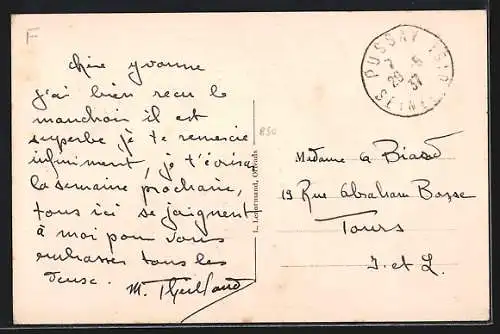 F
chère yvonne
j'ai bien reçu le
manchon il est
superbe je te remercie
infiniment, je t'écrirai
la semaine prochaine,
tous ici se joignent
à moi pour vous
embrasser tous les
deux.
M.
850
L. Lecornand,
PUSSAY (S.& O.)
29 5
37
Madame
19 Rue Abraham Bosse
Tours
I. et L.